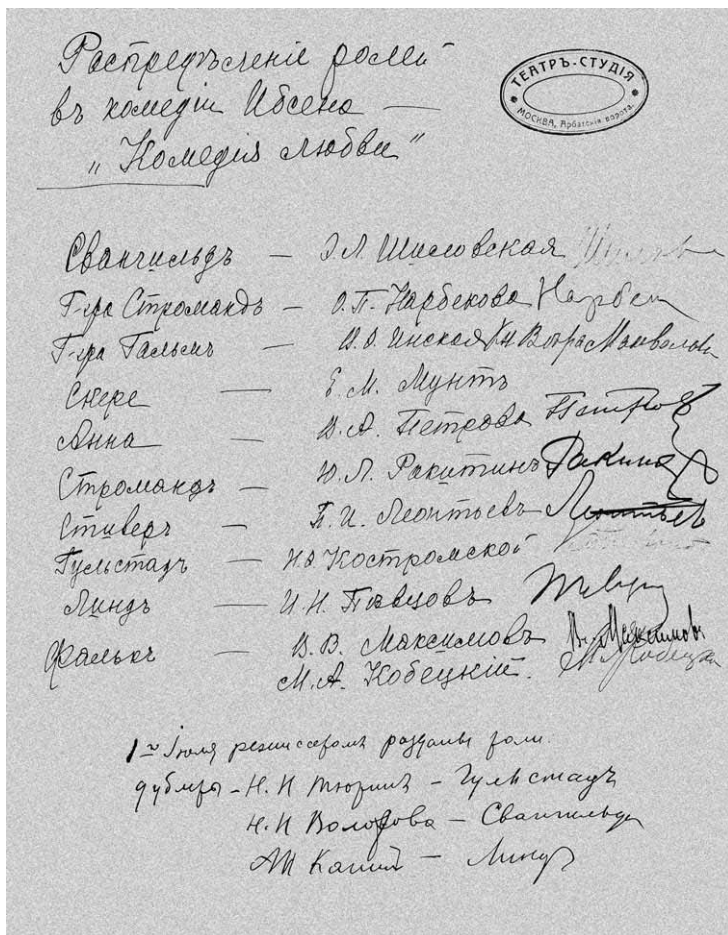 Распредѣленіе ролей
въ комедіи Ибсена —
„Комедія любви“
ТЕАТРЪ-СТУДІЯ
МОСКВА, Арбатскія ворота.
Свангильдъ — Э. Л. Шиловская
Г-жа Стромандъ — О. П. Нарбекова Нарбек
Г-жа Гальмъ — И. О. Инская
Скере — Е. М. Мунтъ
Анна — В. А. Петрова Петров
Стромандъ — Ю. Л. Ракитинъ Ракитин
Стиверъ — П. И. Леонтьевъ Леонтьев
Гульстадъ — Костромской
Линдъ — И. Н. Певцовъ
Фалькъ — В. В. Максимовъ Вл. Максимовъ
М. А. Кобецкій. М. Кобецкій
1го Іюля режиссеромъ розданы роли.
дублеры — Н. И. Тюринъ — Гульстадъ
Н. И. — Свангильда
— Линдъ